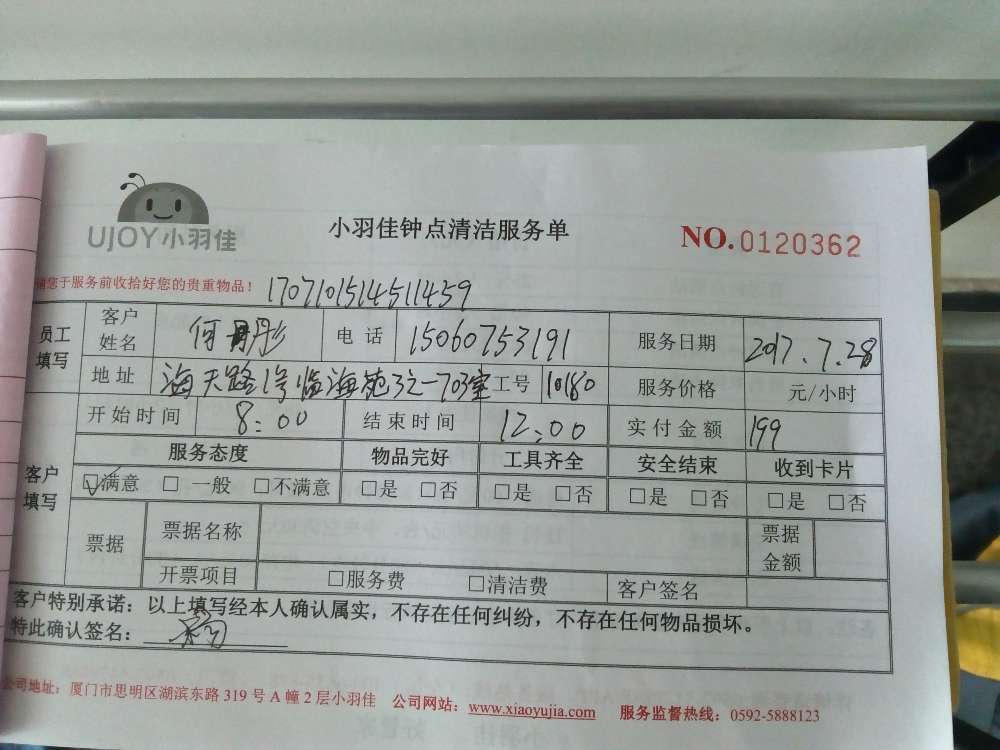 UJOY小羽佳
小羽佳钟点清洁服务单
NO.0120362
您于服务前收拾好您的贵重物品！ 1707101514511459
员工填写 客户姓名 何丹彤 电话 15060753191 服务日期 2017.7.28
地址 海天路1号临海苑3之一703室 工号 10180 服务价格 元/小时
客户填写 开始时间 8:00 结束时间 12:00 实付金额 199
服务态度 物品完好 工具齐全 安全结束 收到卡片
☑满意 □一般 □不满意 □是 □否 □是 □否 □是 □否 □是 □否
票据 票据名称 票据金额
开票项目 □服务费 □清洁费 客户签名
客户特别承诺：以上填写经本人确认属实，不存在任何纠纷，不存在任何物品损坏。
特此确认签名：
公司地址：厦门市思明区湖滨东路 319 号 A 幢 2 层小羽佳 公司网站：www.xiaoyujia.com 服务监督热线：0592-5888123